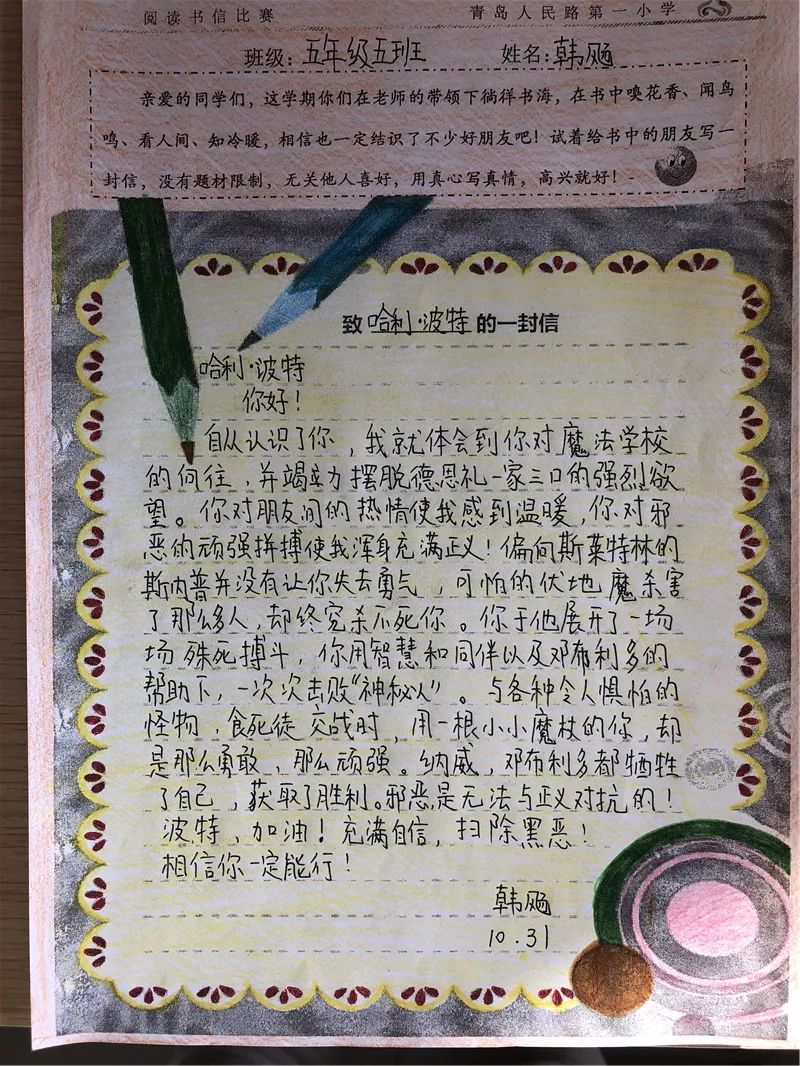 阅读书信比赛 青岛人民路第一小学
班级:五年级五班 姓名:韩飏
亲爱的同学们，这学期你们在老师的带领下徜徉书海，在书中嗅花香、闻鸟
鸣、看人间、知冷暖，相信也一定结识了不少好朋友吧！试着给书中的朋友写一
封信，没有题材限制，无关他人喜好，用真心写真情，高兴就好！
致哈利·波特的一封信
哈利·波特
你好！
自从认识了你，我就体会到你对魔法学校
的向往，并竭力摆脱德思礼一家三口的强烈欲
望。你对朋友间的热情使我感到温暖，你对邪
恶的顽强拼搏使我浑身充满正义！偏向斯莱特林的
斯内普并没有让你失去勇气，可怕的伏地魔杀害
了那么多人，却终究杀不死你。你于他展开了一场
场殊死搏斗，你用智慧和同伴以及邓布利多的
帮助下，一次次击败“神秘人”。与各种令人惧怕的
怪物，食死徒交战时，用一根小小魔杖的你，却
是那么勇敢，那么顽强。纳威，邓布利多都牺牲
了自己，获取了胜利。邪恶是无法与正义对抗的！
波特，加油！充满自信，扫除黑恶！
相信你一定能行！
韩飏
10.31